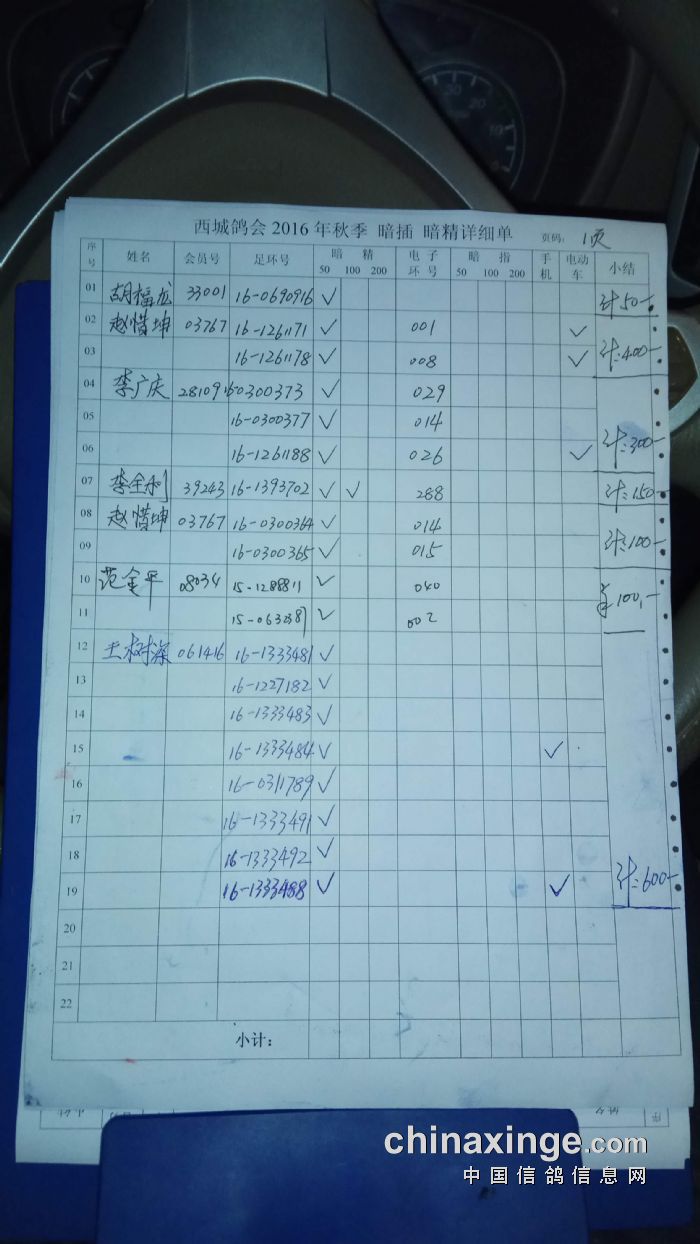 西城鸽会 2016 年秋季 暗插 暗精详细单 页码： 1页
序号 姓名 会员号 足环号 暗 精 50 100 200 电子环号 暗 指 50 100 200 手机 电动车 小结
01 胡福龙 33001 16-0690916 √ 计50-
02 赵惜坤 03767 16-1261171 √ 001 √
03 16-1261178 √ 008 √ 计:400-
04 李广庆 281091 0300373 √ 029
05 16-0300377 √ 014
06 16-1261188 √ 026 √ 计:300-
07 李全利 39243 16-1393702 √ √ 288 计:150-
08 赵惜坤 03767 16-0300364 √ 014
09 16-0300365 √ 015 计:100-
10 范金平 08034 15-1288811 √ 040 100,-
11 15-0632381 √ 002
12 王树深 061416 16-1333481 √
13 16-1227182 √
14 16-1333483 √
15 16-1333484 √ √
16 16-0311789 √
17 16-1333491 √
18 16-1333492 √
19 16-1333488 √ √ 计:600-
20
21
22
小计：
30
20
10
chinaxinge.com
中国信鸽信息网